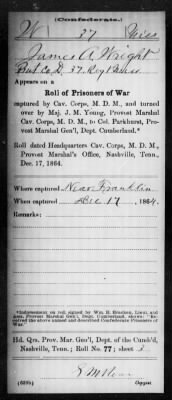 (Confederate.)
W 37 Miss
James A. Wright
Pvt Co. D, 37 Reg't Miss
Appears on a
Roll of Prisoners of War
captured by Cav. Corps, M. D. M., and turned
over by Maj. J. M. Young, Provost Marshal
Cav. Corps, M. D. M., to Col. Parkhurst, Pro-
vost Marshal Gen'l, Dept. Cumberland.*
Roll dated Headquarters Cav. Corps, M. D. M.,
Provost Marshal's Office, Nashville, Tenn.,
Dec. 17, 1864.
Where captured Near Franklin
When captured Dec 17, 1864.
Remarks:
*Indorsement on roll signed by Wm. H. Bracken, Lieut and
Asst. Provost Marshal Gen'l, Dept. Cumberland shows: "Re-
ceived the above named and described Confederate Prisoners of
War."
Hd. Qrs. Prov. Mar. Gen'l, Dept. of the Cumb'd,
Nashville, Tenn.; Roll No. 77; sheet
(639b) Copyist.